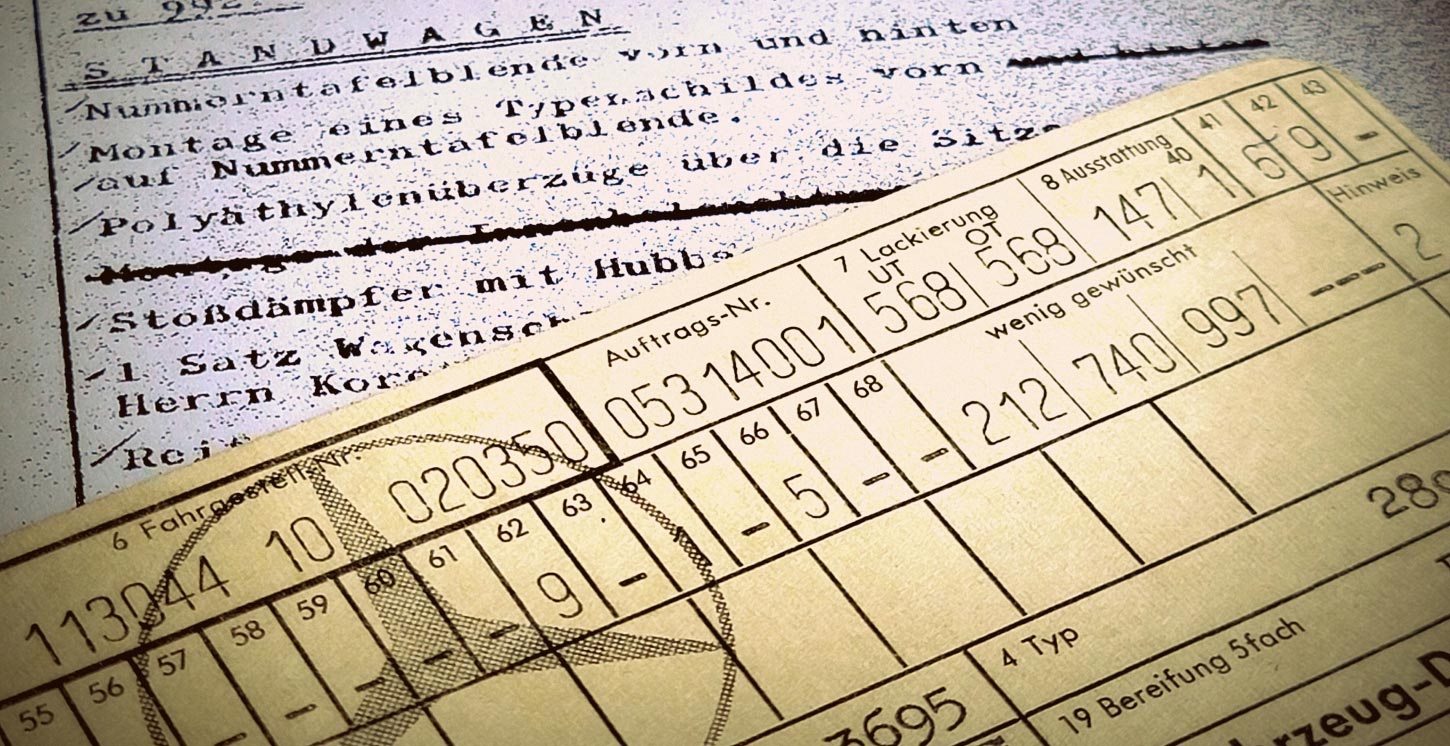 zu 992
S T A N D W A G E N
Nummerntafelblende vorn und hinten
Montage eines Typenschildes vorn und hinten
auf Nummerntafelblende.
Polyäthylenüberzüge über die Sitze
Stoßdämpfer mit Hubbe
1 Satz Wagensch
Herrn Kor
Rei
6 Fahrgestell-Nr.
113044 10 020350
Auftrags-Nr.
05314001
7 Lackierung
UT OT
568 568
8 Ausstattung
40 41 42 43
147 1 6 9 -
55 56 57 58 59 60 61 62 63 64 65 66 67 68
- - - - - 9 - 1 - 5 - -
wenig gewünscht
212 740 997 ---
Hinweis
2
289
4 Typ
3695
19 Bereifung 5fach
rzeug-D